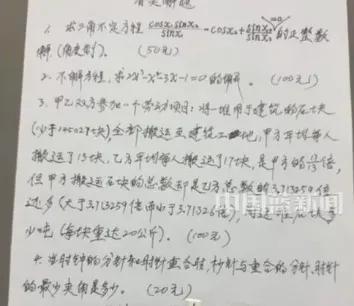 1. 求三角不定方程 的正整数
解(角度制). (50元)
2. 不解方程, 求2x³-x²-3x-1=0的解. (100元)
3. 甲乙双方参加一个劳动项目: 将一堆用于建筑的石块
全部搬运至建筑工地, 甲方平均每人
搬运了15块, 乙方平均每人搬运了17块, 是甲方的
但甲方搬运石块的总数却是乙方总数的3.713259倍
还多(大于3.713259倍而小于3.71326倍),
少吨(每块重达20公斤). (100元)
4. 当时钟的分针和时针重合时, 秒针与重合的分针、时针
的最少夹角是多少. (20元)
中国蓝新闻